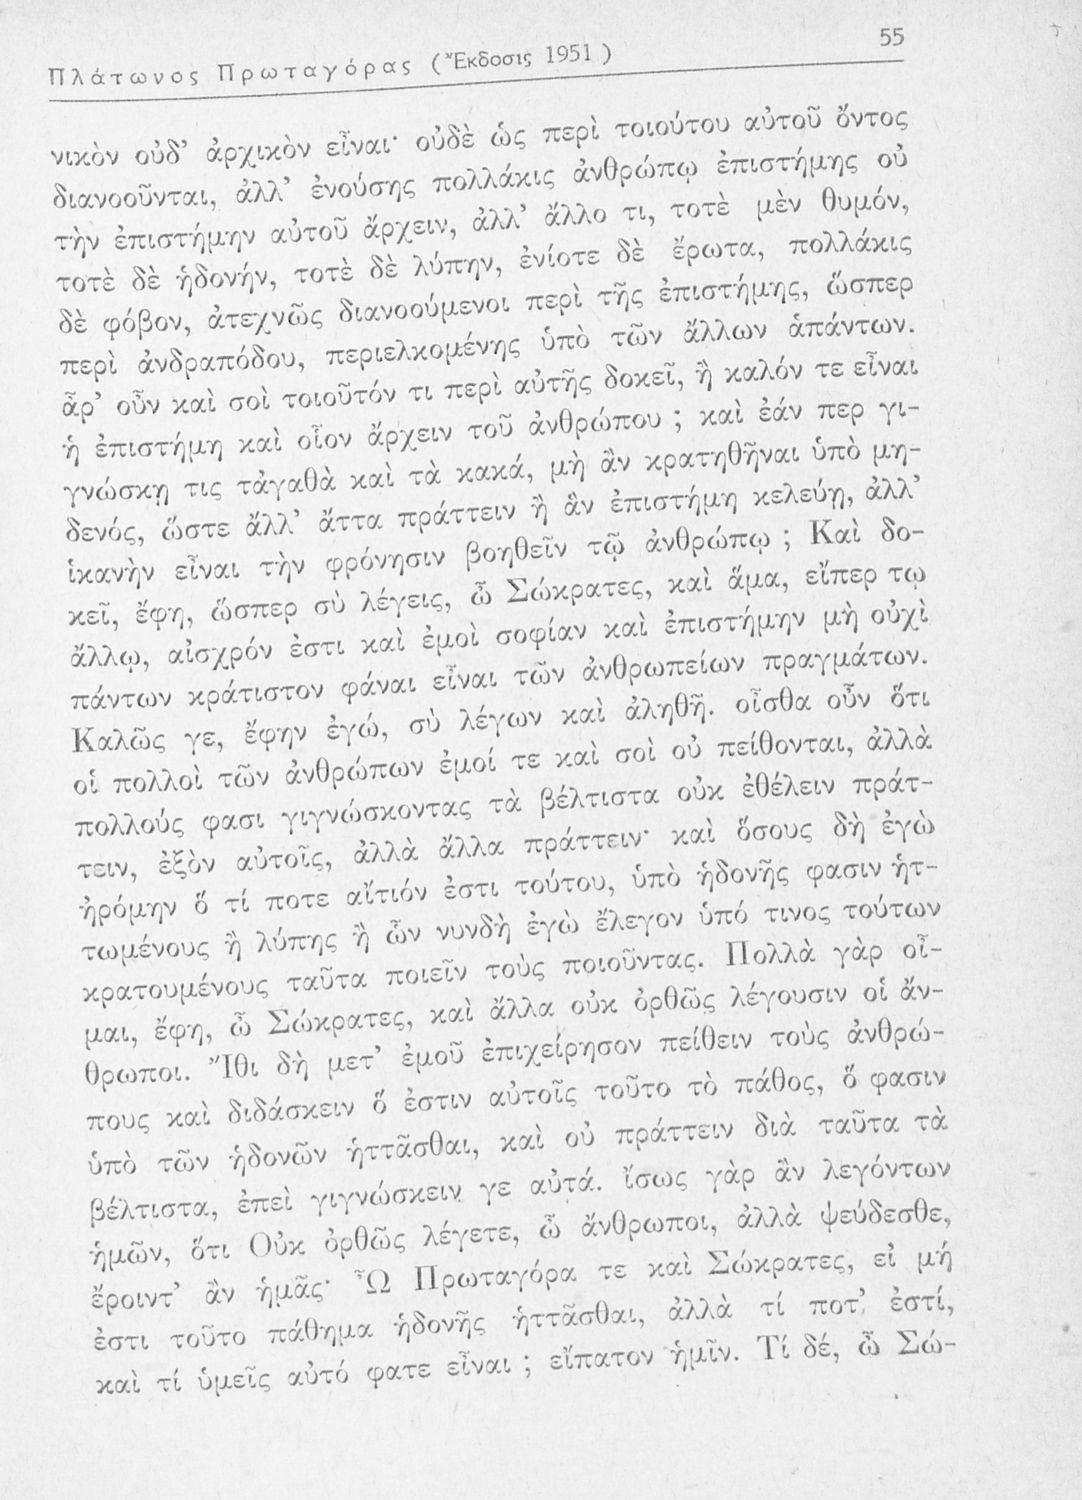 Πλάτωνος Πρωταγόρας (Ἔκδοσις 1951) 55
νικὸν οὐδ’ ἀρχικὸν εἶναι· οὐδὲ ὡς περὶ τοιούτου αὐτοῦ ὄντος
διανοοῦνται, ἀλλ’ ἐνούσης πολλάκις ἀνθρώπῳ ἐπιστήμης οὐ
τὴν ἐπιστήμην αὐτοῦ ἄρχειν, ἀλλ’ ἄλλο τι, τοτὲ μὲν θυμόν,
τοτὲ δὲ ἡδονήν, τοτὲ δὲ λύπην, ἐνίοτε δὲ ἔρωτα, πολλάκις
δὲ φόβον, ἀτεχνῶς διανοούμενοι περὶ τῆς ἐπιστήμης, ὥσπερ
περὶ ἀνδραπόδου, περιελκομένης ὑπὸ τῶν ἄλλων ἁπάντων.
ἆρ’ οὖν καὶ σοὶ τοιοῦτόν τι περὶ αὐτῆς δοκεῖ, ἢ καλόν τε εἶναι
ἡ ἐπιστήμη καὶ οἷον ἄρχειν τοῦ ἀνθρώπου ; καὶ ἐάν περ γι-
γνώσκῃ τις τἀγαθὰ καὶ τὰ κακά, μὴ ἂν κρατηθῆναι ὑπὸ μη-
δενός, ὥστε ἄλλ’ ἄττα πράττειν ἢ ἂν ἐπιστήμη κελεύῃ, ἀλλ’
ἱκανὴν εἶναι τὴν φρόνησιν βοηθεῖν τῷ ἀνθρώπῳ ; Καὶ δο-
κεῖ, ἔφη, ὥσπερ σὺ λέγεις, ὦ Σώκρατες, καὶ ἅμα, εἴπερ τῳ
ἄλλῳ, αἰσχρόν ἐστι καὶ ἐμοὶ σοφίαν καὶ ἐπιστήμην μὴ οὐχὶ
πάντων κράτιστον φάναι εἶναι τῶν ἀνθρωπείων πραγμάτων.
Καλῶς γε, ἔφην ἐγώ, σὺ λέγων καὶ ἀληθῆ. οἶσθα οὖν ὅτι
οἱ πολλοὶ τῶν ἀνθρώπων ἐμοί τε καὶ σοὶ οὐ πείθονται, ἀλλὰ
πολλούς φασι γιγνώσκοντας τὰ βέλτιστα οὐκ ἐθέλειν πράτ-
τειν, ἐξὸν αὐτοῖς, ἀλλὰ ἄλλα πράττειν· καὶ ὅσους δὴ ἐγὼ
ἠρόμην ὅ τί ποτε αἴτιόν ἐστι τούτου, ὑπὸ ἡδονῆς φασιν ἡτ-
τωμένους ἢ λύπης ἢ ὧν νυνδὴ ἐγὼ ἔλεγον ὑπό τινος τούτων
κρατουμένους ταῦτα ποιεῖν τοὺς ποιοῦντας. Πολλὰ γὰρ οἶ-
μαι, ἔφη, ὦ Σώκρατες, καὶ ἄλλα οὐκ ὀρθῶς λέγουσιν οἱ ἄν-
θρωποι. Ἴθι δὴ μετ’ ἐμοῦ ἐπιχείρησον πείθειν τοὺς ἀνθρώ-
πους καὶ διδάσκειν ὅ ἐστιν αὐτοῖς τοῦτο τὸ πάθος, ὅ φασιν
ὑπὸ τῶν ἡδονῶν ἡττᾶσθαι, καὶ οὐ πράττειν διὰ ταῦτα τὰ
βέλτιστα, ἐπεὶ γιγνώσκειν γε αὐτά. ἴσως γὰρ ἂν λεγόντων
ἡμῶν, ὅτι Οὐκ ὀρθῶς λέγετε, ὦ ἄνθρωποι, ἀλλὰ ψεύδεσθε,
ἔροιντ’ ἂν ἡμᾶς· Ὦ Πρωταγόρα τε καὶ Σώκρατες, εἰ μή
ἐστι τοῦτο πάθημα ἡδονῆς ἡττᾶσθαι, ἀλλὰ τί ποτ’ ἐστί,
καὶ τί ὑμεῖς αὐτό φατε εἶναι ; εἴπατον ἡμῖν. Τί δέ, ὦ Σώ-